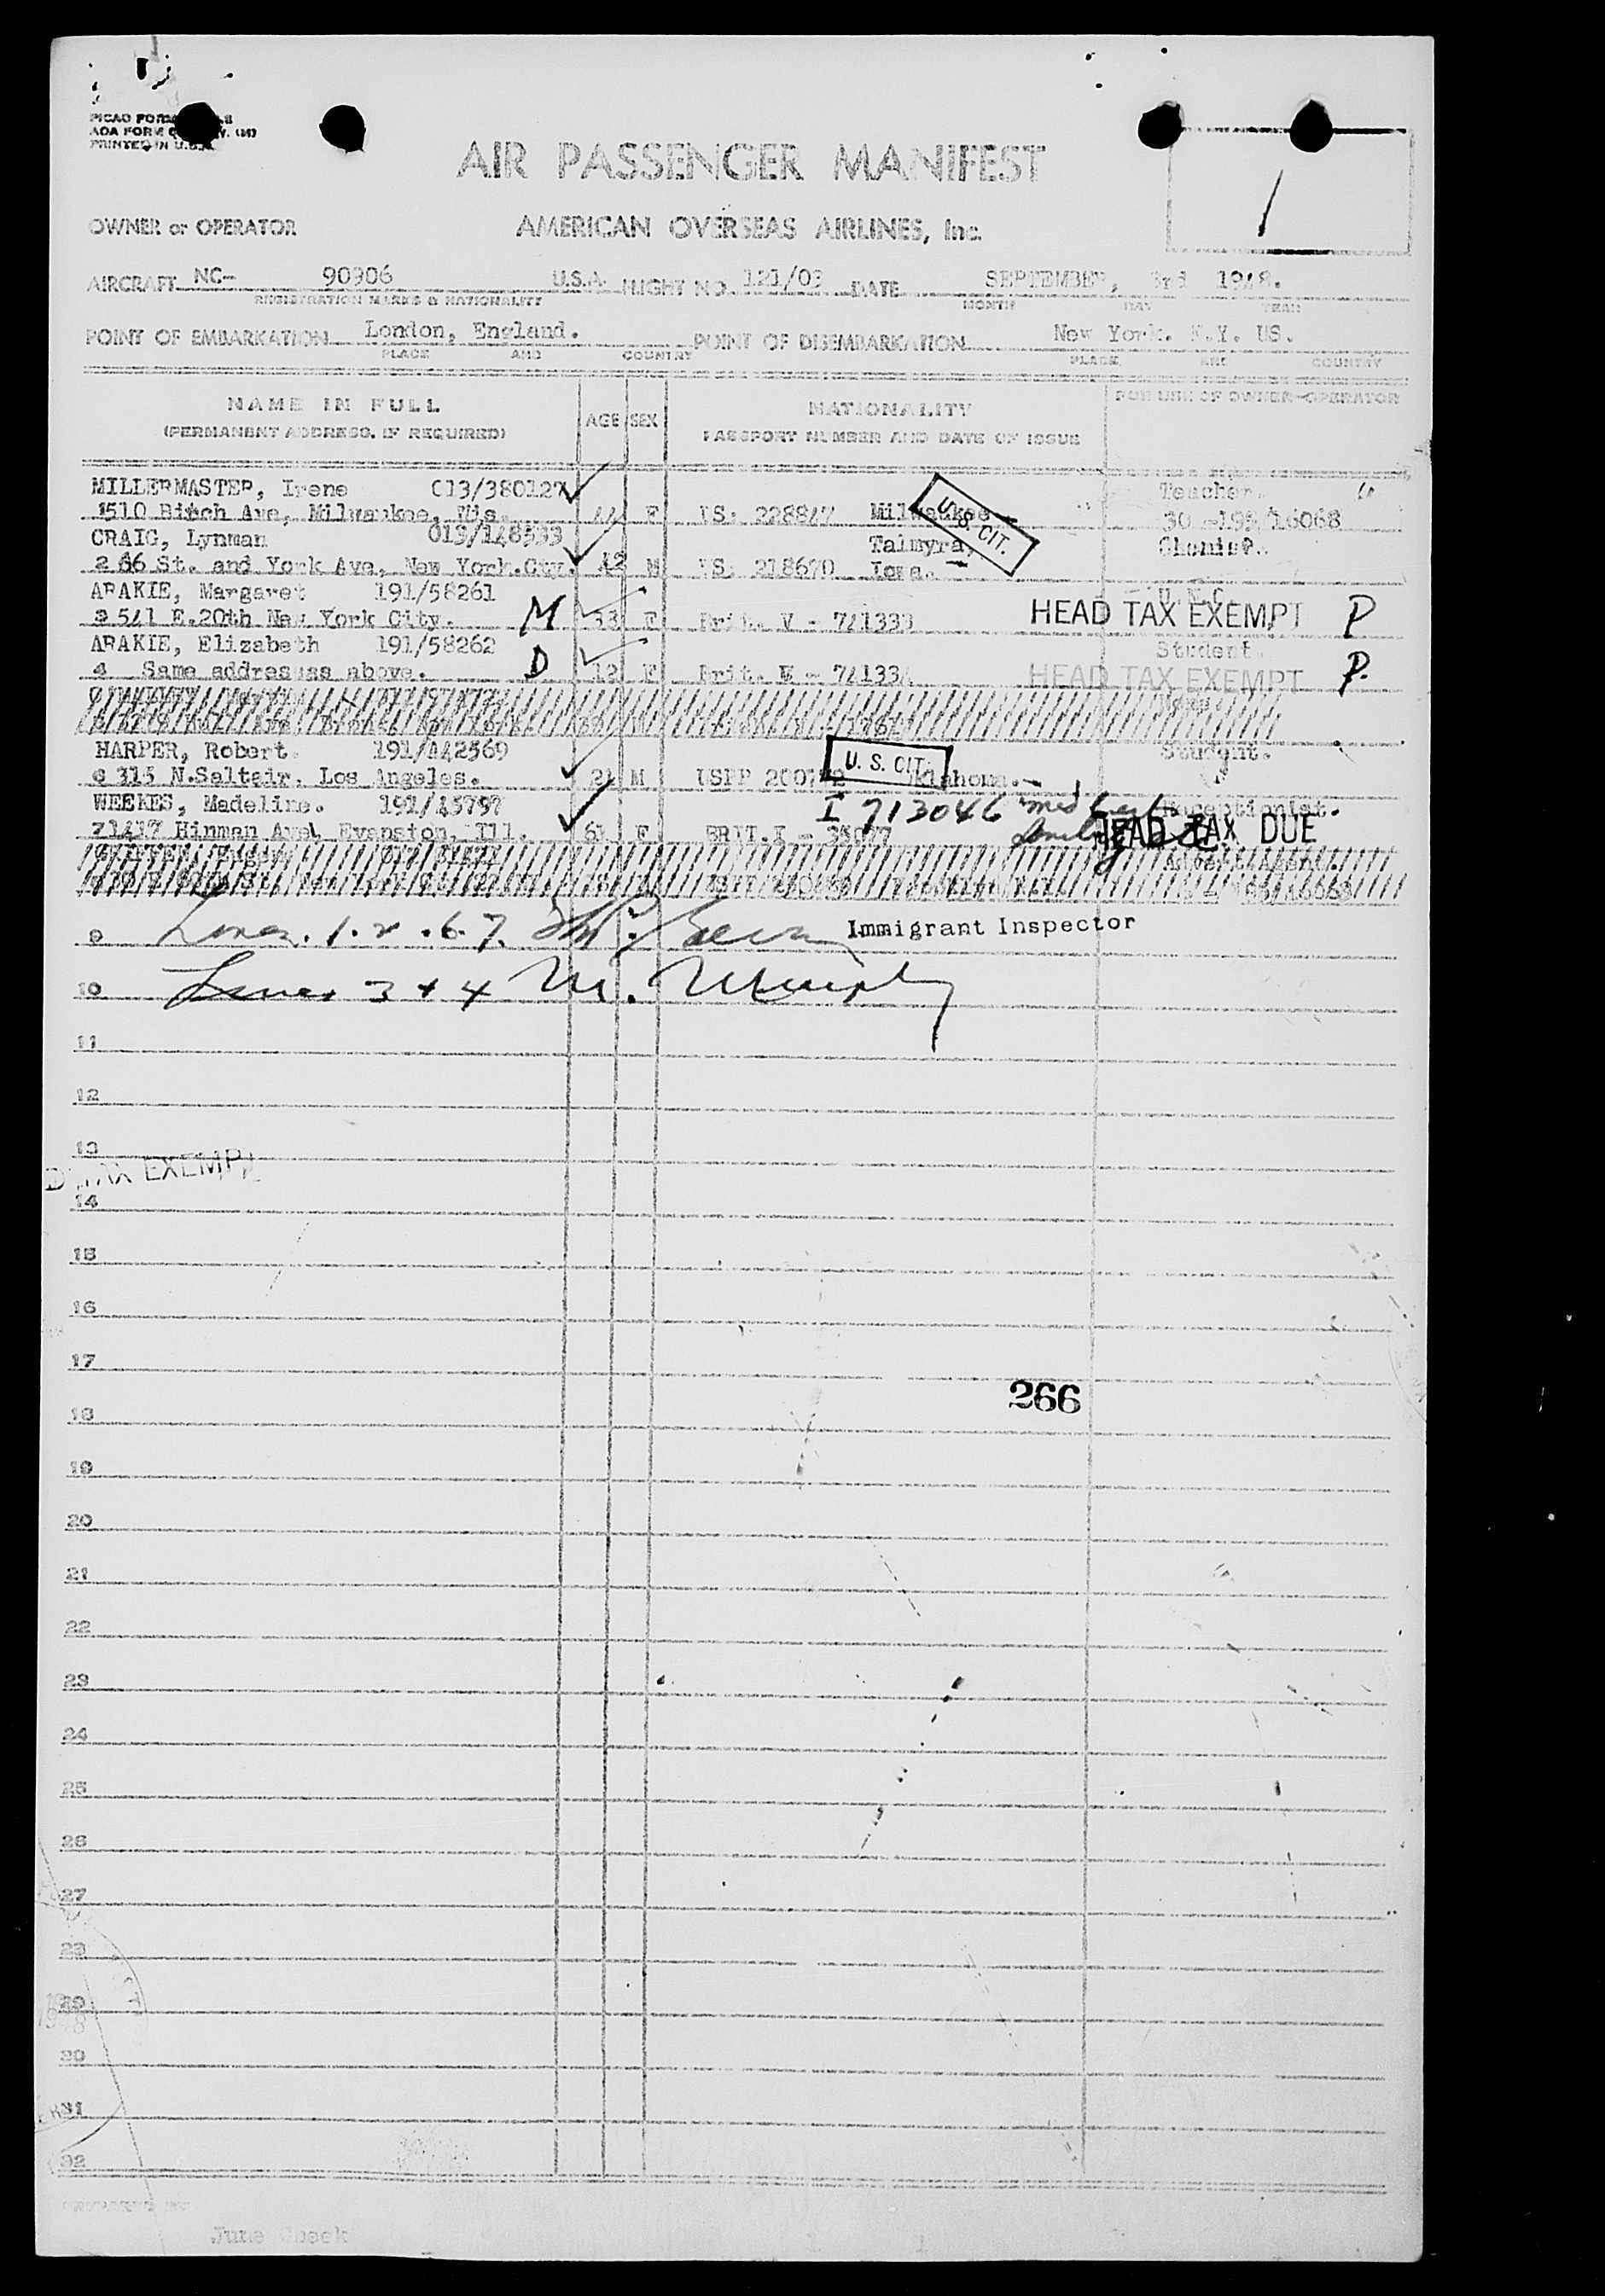 PICAO FORM
AOA FORM
PRINTED IN U.S.A.
AIR PASSENGER MANIFEST
1
OWNER or OPERATOR AMERICAN OVERSEAS AIRLINES, Inc.
AIRCRAFT NC- 90906 U.S.A. FLIGHT NO. 121/03 DATE SEPTEMBER, 3rd 1948.
REGISTRATION MARKS & NATIONALITY MONTH DAY YEAR
POINT OF EMBARKATION London, England. POINT OF DISEMBARKATION New York. N.Y. US.
PLACE AND COUNTRY PLACE AND COUNTRY
NAME IN FULL AGE SEX NATIONALITY FOR USE OF OWNER-OPERATOR
(PERMANENT ADDRESS, IF REQUIRED) PASSPORT NUMBER AND DATE OF ISSUE
MILLERMASTER, Irene 013/380127 Teacher.
1510 Birch Ave, Milwaukee, Wis. 44 F US: 228847 Milwaukee 16068
U. S. CIT.
CRAIG, Lynman 019/148533 Talmyra, Chemist.
2 66 St. and York Ave, New York.City. 42 M US: 218670 Iowa.
ARAKIE, Margaret 191/58261
3 541 E.20th New York City. M 33 F Brit. V - 741333 HEAD TAX EXEMPT P
ARAKIE, Elizabeth 191/58262 Student.
4 Same address as above. D F Brit. 74133 HEAD TAX EXEMPT P.
HARPER, Robert. 191/442569 Student.
6 315 N.Saltair, Los Angeles. 21 M USPP U. S. CIT. Oklahoma.
WEEKES, Madeline. 191/45797 I 713046 med Receptionist.
7 1417 Hinman Ave, Evanston, Ill. F BRIT.I - HEAD TAX DUE
9 Lines. 1. 2. .6. 7. Immigrant Inspector
10 Lines 3 + 4 M. Murphy
11
12
13
TAX EXEMPT
14
15
16
17
266
18
19
20
21
22
23
24
25
26
27
28
29
30
31
32
PREPARED BY
June Cheek